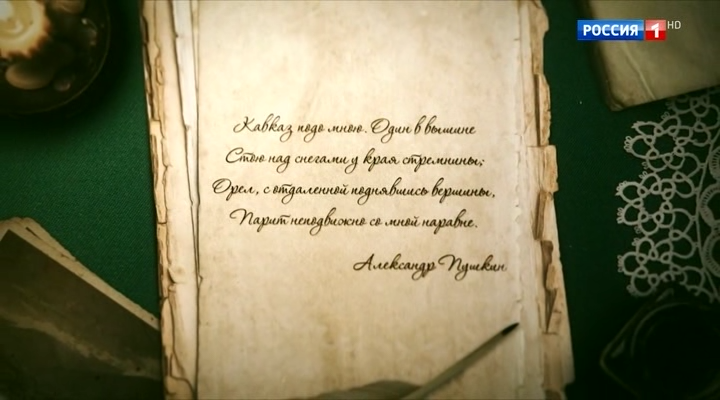 РОССИЯ 1 HD
Кавказ подо мною. Один в вышине
Стою над снегами у края стремнины;
Орел, с отдаленной поднявшись вершины,
Парит неподвижно со мной наравне.
Александр Пушкин